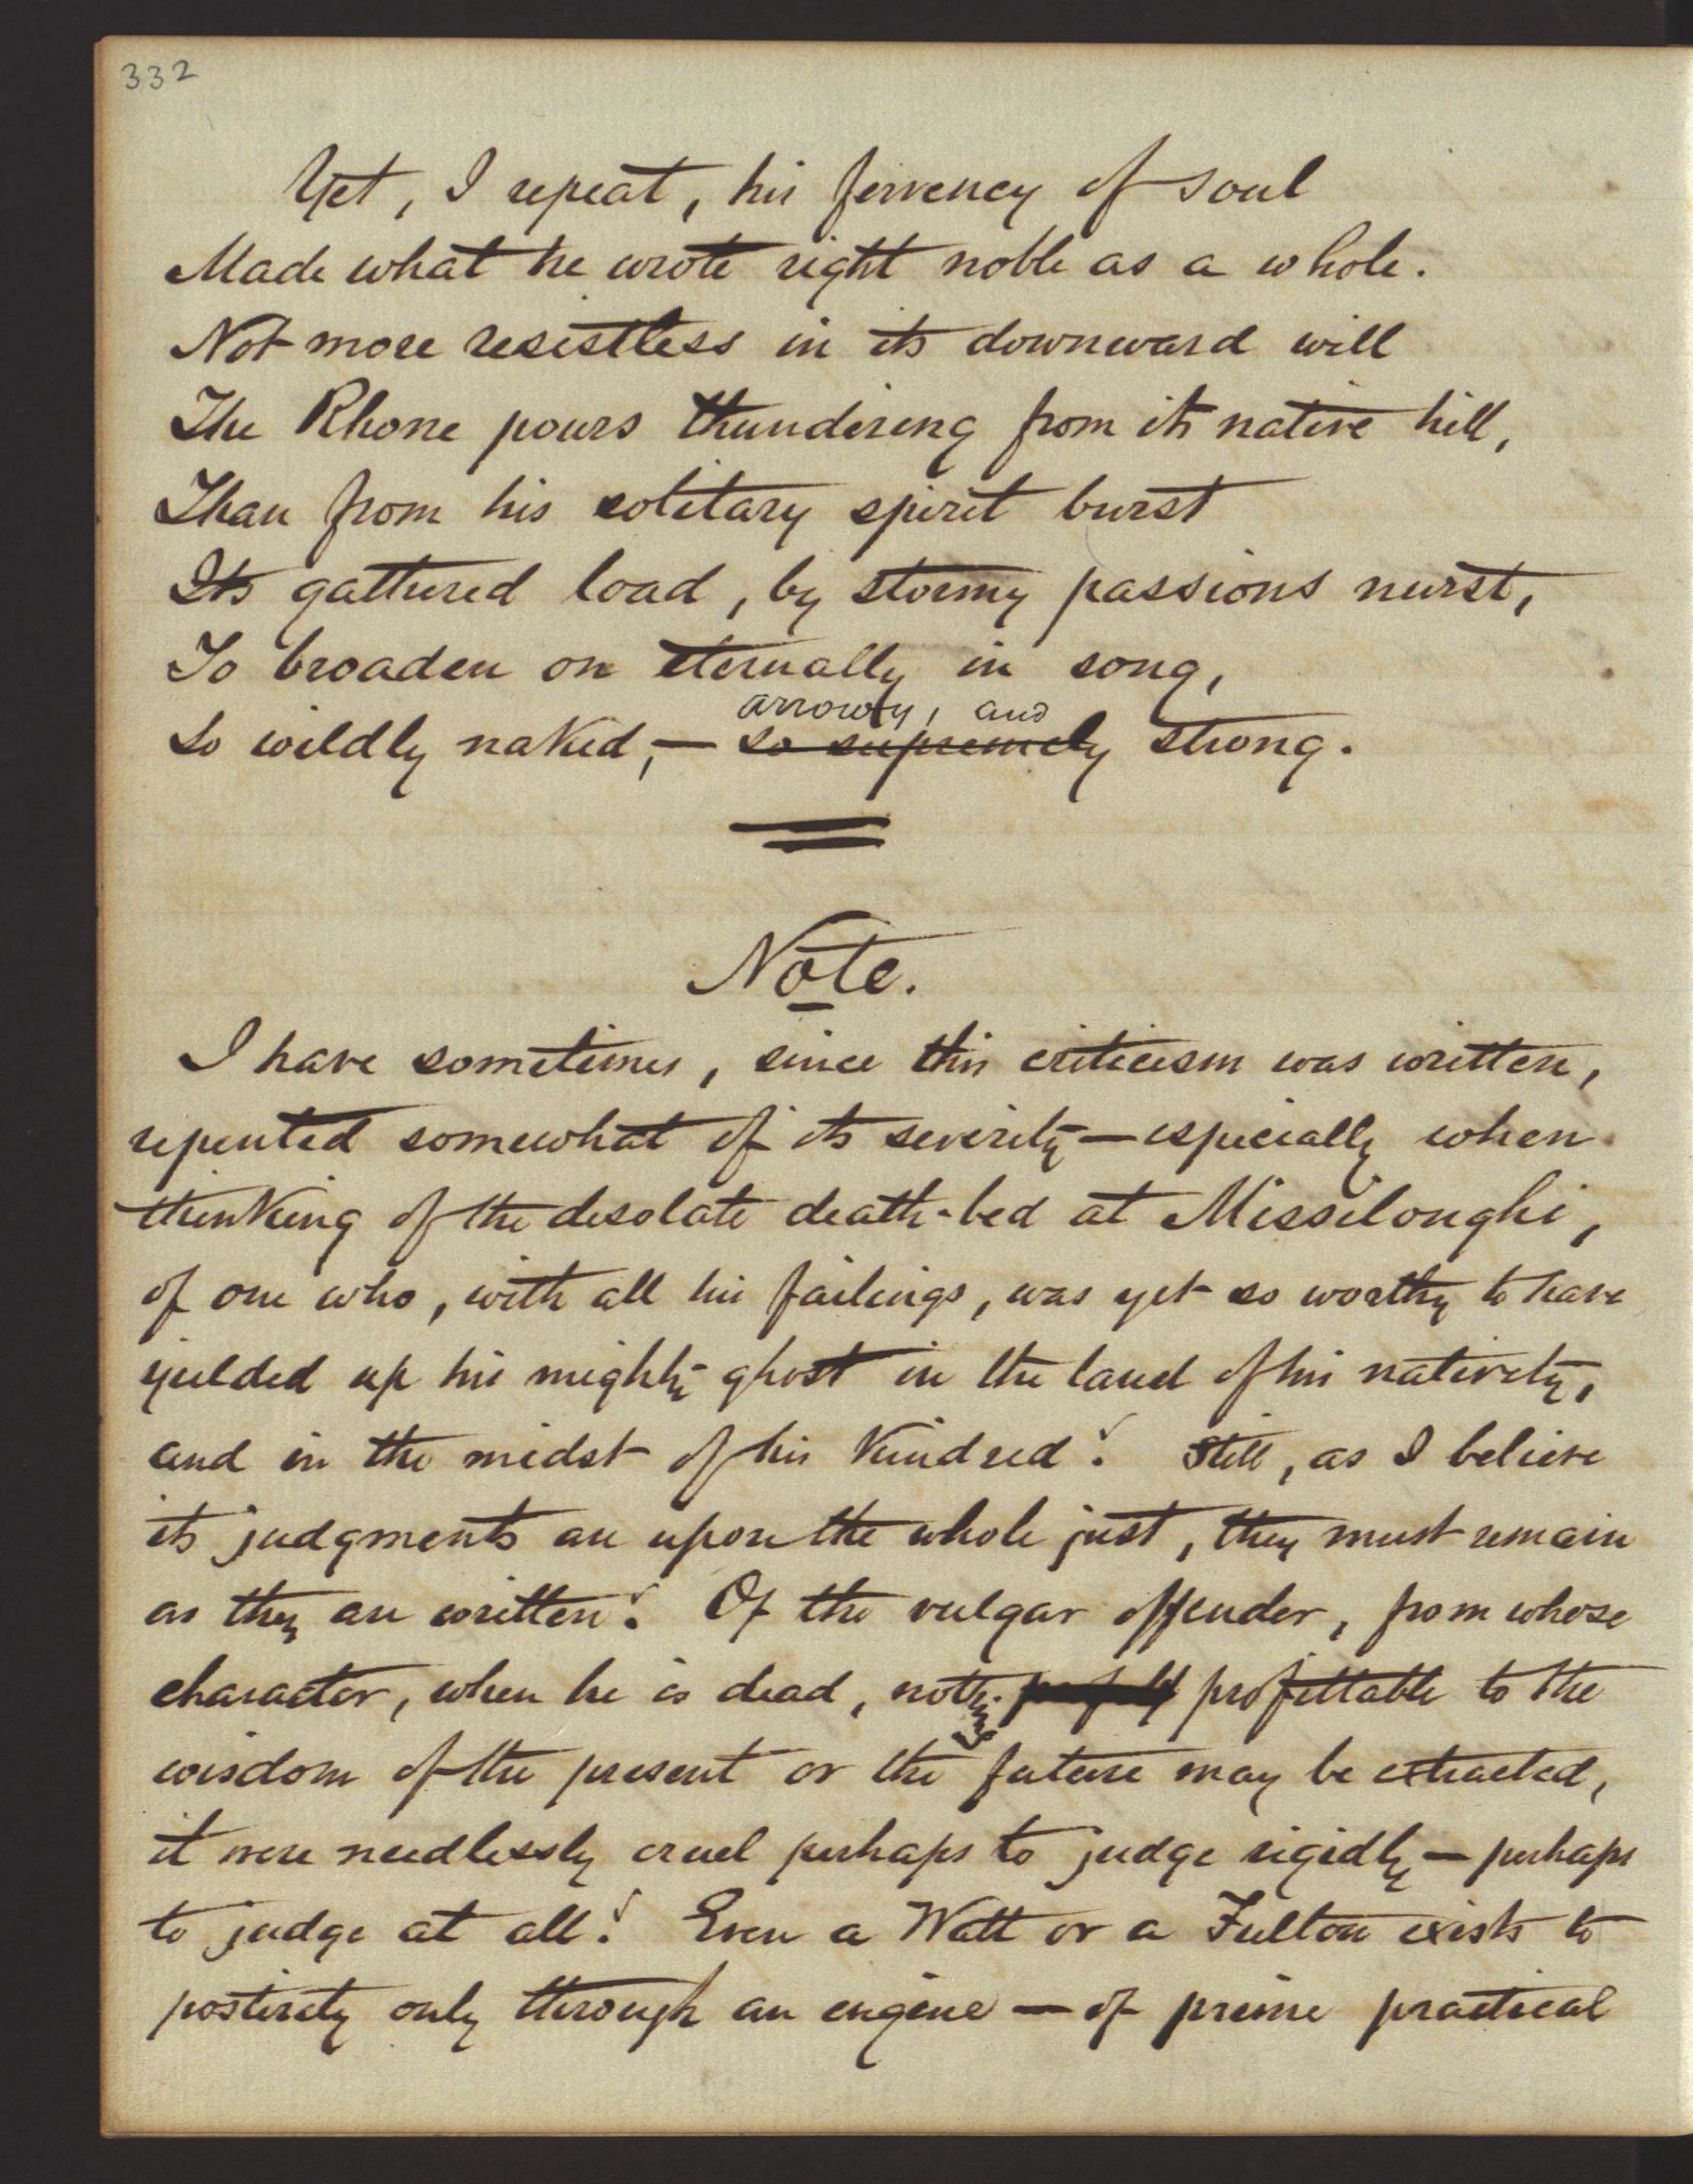 332
Yet, I repeat, his fervency of soul
Made what he wrote right noble as a whole.
Not more resistless in its downward will
The Rhone pours thundering from its native hill,
Than from his solitary spirit burst
Its gathered load, by stormy passions nurst,
To broaden on eternally in song,
arrowy, and
So wildly naked, — so supremely strong.
Note.
I have sometimes, since this criticism was written,
repented somewhat of its severity — especially when
thinking of the desolate death-bed at Missilonghi,
of one who, with all his failings, was yet so worthy to have
yielded up his mighty ghost in the land of his nativity,
and in the midst of his kindred! Still, as I believe
its judgments are upon the whole just, they must remain
as they are written! Of the vulgar offender, from whose
character, when he is dead, nothing profittable to the
wisdom of the present or the future may be extracted,
it were needlessly cruel perhaps to judge rigidly — perhaps
to judge at all! Even a Watt or a Fulton exists to
posterity only through an engine — of prime practical